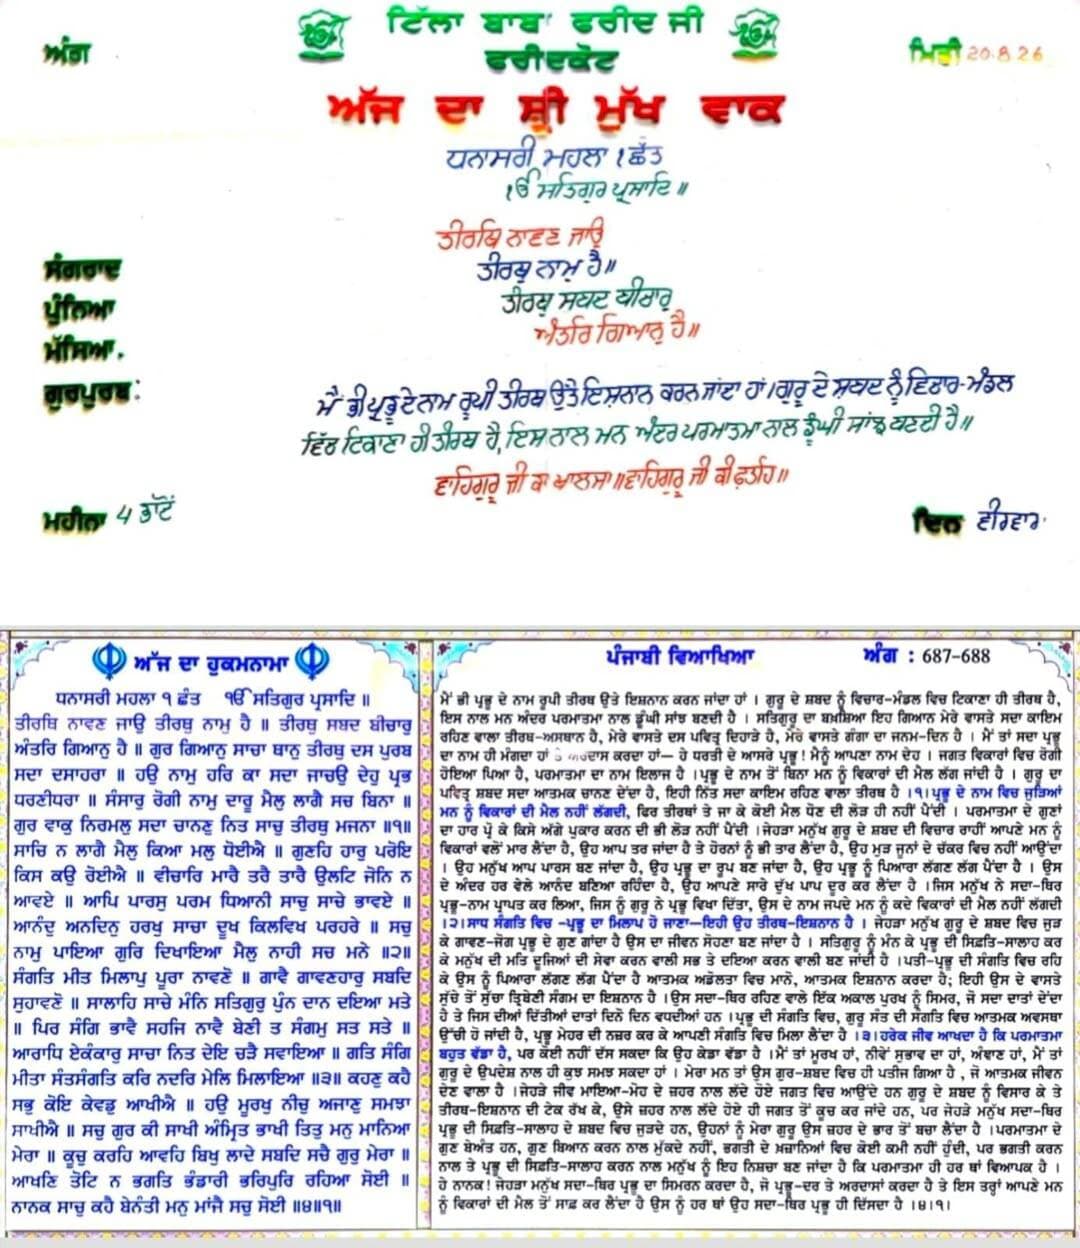 ਅੰਗ
ਟਿੱਲਾ ਬਾਬਾ ਫਰੀਦ ਜੀ
ਫਰੀਦਕੋਟ
ਮਿਤੀ 20.8.26
ਅੱਜ ਦਾ ਸ਼੍ਰੀ ਮੁੱਖ ਵਾਕ
ਧਨਾਸਰੀ ਮਹਲਾ ੧ ਛੰਤ
ੴ ਸਤਿਗੁਰ ਪ੍ਰਸਾਦਿ ॥
ਤੀਰਥਿ ਨਾਵਣ ਜਾਉ
ਤੀਰਥੁ ਨਾਮੁ ਹੈ॥
ਤੀਰਥੁ ਸਬਦ ਬੀਚਾਰੁ
ਅੰਤਰਿ ਗਿਆਨੁ ਹੈ॥
ਸੰਗਰਾਦ
ਪੁੰਨਿਆ
ਮੱਸਿਆ.
ਗੁਰਪੁਰਬ:
ਮੈਂ ਭੀ ਪ੍ਰਭੂ ਦੇ ਨਾਮ ਰੂਪੀ ਤੀਰਥ ਉਤੇ ਇਸ਼ਨਾਨ ਕਰਨ ਜਾਂਦਾ ਹਾਂ।ਗੁਰੂ ਦੇ ਸ਼ਬਦ ਨੂੰ ਵਿਚਾਰ-ਮੰਡਲ
ਵਿੱਚ ਟਿਕਾਣਾ ਹੀ ਤੀਰਥ ਹੈ,ਇਸ ਨਾਲ ਮਨ ਅੰਦਰ ਪਰਮਾਤਮਾ ਨਾਲ ਡੂੰਘੀ ਸਾਂਝ ਬਣਦੀ ਹੈ॥
ਵਾਹਿਗੁਰੂ ਜੀ ਕਾ ਖਾਲਸਾ॥ਵਾਹਿਗੁਰੂ ਜੀ ਕੀ ਫ਼ਤਹਿ॥
ਮਹੀਨਾ 4 ਭਾਦੋਂ
ਦਿਨ ਵੀਰਵਾਰ.
ਅੱਜ ਦਾ ਹੁਕਮਨਾਮਾ
ਧਨਾਸਰੀ ਮਹਲਾ ੧ ਛੰਤ ੴ ਸਤਿਗੁਰ ਪ੍ਰਸਾਦਿ ॥
ਤੀਰਥਿ ਨਾਵਣ ਜਾਉ ਤੀਰਥੁ ਨਾਮੁ ਹੈ ॥ ਤੀਰਥੁ ਸਬਦ ਬੀਚਾਰੁ
ਅੰਤਰਿ ਗਿਆਨੁ ਹੈ ॥ ਗੁਰ ਗਿਆਨੁ ਸਾਚਾ ਥਾਨੁ ਤੀਰਥੁ ਦਸ ਪੁਰਬ
ਸਦਾ ਦਸਾਹਰਾ ॥ ਹਉ ਨਾਮੁ ਹਰਿ ਕਾ ਸਦਾ ਜਾਚਉ ਦੇਹੁ ਪ੍ਰਭ
ਧਰਣੀਧਰਾ ॥ ਸੰਸਾਰੁ ਰੋਗੀ ਨਾਮੁ ਦਾਰੂ ਮੈਲੁ ਲਾਗੈ ਸਚ ਬਿਨਾ ॥
ਗੁਰ ਵਾਕੁ ਨਿਰਮਲੁ ਸਦਾ ਚਾਨਣੁ ਨਿਤ ਸਾਚੁ ਤੀਰਥੁ ਮਜਨਾ ॥੧॥
ਸਾਚਿ ਨ ਲਾਗੈ ਮੈਲੁ ਕਿਆ ਮਲੁ ਧੋਈਐ ॥ ਗੁਣਹਿ ਹਾਰੁ ਪਰੋਇ
ਕਿਸ ਕਉ ਰੋਈਐ ॥ ਵੀਚਾਰਿ ਮਾਰੈ ਤਰੈ ਤਾਰੈ ਉਲਟਿ ਜੋਨਿ ਨ
ਆਵਏ ॥ ਆਪਿ ਪਾਰਸੁ ਪਰਮ ਧਿਆਨੀ ਸਾਚੁ ਸਾਚੇ ਭਾਵਏ ॥
ਆਨੰਦੁ ਅਨਦਿਨੁ ਹਰਖੁ ਸਾਚਾ ਦੂਖ ਕਿਲਵਿਖ ਪਰਹਰੇ ॥ ਸਚੁ
ਨਾਮੁ ਪਾਇਆ ਗੁਰਿ ਦਿਖਾਇਆ ਮੈਲੁ ਨਾਹੀ ਸਚ ਮਨੇ ॥੨॥
ਸੰਗਤਿ ਮੀਤ ਮਿਲਾਪੁ ਪੂਰਾ ਨਾਵਣੋ ॥ ਗਾਵੈ ਗਾਵਣਹਾਰੁ ਸਬਦਿ
ਸੁਹਾਵਣੋ ॥ ਸਾਲਾਹਿ ਸਾਚੇ ਮੰਨਿ ਸਤਿਗੁਰੁ ਪੁੰਨ ਦਾਨ ਦਇਆ ਮਤੇ
॥ ਪਿਰ ਸੰਗਿ ਭਾਵੈ ਸਹਜਿ ਨਾਵੈ ਬੇਣੀ ਤ ਸੰਗਮੁ ਸਤ ਸਤੇ ॥
ਆਰਾਧਿ ਏਕੰਕਾਰੁ ਸਾਚਾ ਨਿਤ ਦੇਇ ਚੜੈ ਸਵਾਇਆ ॥ ਗਤਿ ਸੰਗਿ
ਮੀਤਾ ਸੰਤਸੰਗਤਿ ਕਰਿ ਨਦਰਿ ਮੇਲਿ ਮਿਲਾਇਆ ॥੩॥ ਕਹਣੁ ਕਹੈ
ਸਭੁ ਕੋਇ ਕੇਵਡੁ ਆਖੀਐ ॥ ਹਉ ਮੂਰਖੁ ਨੀਚੁ ਅਜਾਣੁ ਸਮਝਾ
ਸਾਖੀਐ ॥ ਸਚੁ ਗੁਰ ਕੀ ਸਾਖੀ ਅੰਮ੍ਰਿਤ ਭਾਖੀ ਤਿਤੁ ਮਨੁ ਮਾਨਿਆ
ਮੇਰਾ ॥ ਕੂਚੁ ਕਰਹਿ ਆਵਹਿ ਬਿਖੁ ਲਾਦੇ ਸਬਦਿ ਸਚੈ ਗੁਰੁ ਮੇਰਾ ॥
ਆਖਣਿ ਤੋਟਿ ਨ ਭਗਤਿ ਭੰਡਾਰੀ ਭਰਿਪੁਰਿ ਰਹਿਆ ਸੋਈ ॥
ਨਾਨਕ ਸਾਚੁ ਕਹੈ ਬੇਨੰਤੀ ਮਨੁ ਮਾਂਜੈ ਸਚੁ ਸੋਈ ॥੪॥੧॥
ਪੰਜਾਬੀ ਵਿਆਖਿਆ ਅੰਗ : 687-688
ਮੈਂ ਭੀ ਪ੍ਰਭੂ ਦੇ ਨਾਮ ਰੂਪੀ ਤੀਰਥ ਉਤੇ ਇਸ਼ਨਾਨ ਕਰਨ ਜਾਂਦਾ ਹਾਂ । ਗੁਰੂ ਦੇ ਸ਼ਬਦ ਨੂੰ ਵਿਚਾਰ-ਮੰਡਲ ਵਿਚ ਟਿਕਾਣਾ ਹੀ ਤੀਰਥ ਹੈ,
ਇਸ ਨਾਲ ਮਨ ਅੰਦਰ ਪਰਮਾਤਮਾ ਨਾਲ ਡੂੰਘੀ ਸਾਂਝ ਬਣਦੀ ਹੈ । ਸਤਿਗੁਰੂ ਦਾ ਬਖ਼ਸ਼ਿਆ ਇਹ ਗਿਆਨ ਮੇਰੇ ਵਾਸਤੇ ਸਦਾ ਕਾਇਮ
ਰਹਿਣ ਵਾਲਾ ਤੀਰਥ-ਅਸਥਾਨ ਹੈ, ਮੇਰੇ ਵਾਸਤੇ ਦਸ ਪਵਿਤ੍ਰ ਦਿਹਾੜੇ ਹੈ, ਮੇਰੇ ਵਾਸਤੇ ਗੰਗਾ ਦਾ ਜਨਮ-ਦਿਨ ਹੈ । ਮੈਂ ਤਾਂ ਸਦਾ ਪ੍ਰਭੂ
ਦਾ ਨਾਮ ਹੀ ਮੰਗਦਾ ਹਾਂ ਅਰਦਾਸ ਕਰਦਾ ਹਾਂ— ਹੇ ਧਰਤੀ ਦੇ ਆਸਰੇ ਪ੍ਰਭੂ ! ਮੈਨੂੰ ਆਪਣਾ ਨਾਮ ਦੇਹ । ਜਗਤ ਵਿਕਾਰਾਂ ਵਿਚ ਰੋਗੀ
ਹੋਇਆ ਪਿਆ ਹੈ, ਪਰਮਾਤਮਾ ਦਾ ਨਾਮ ਇਲਾਜ ਹੈ ।ਪ੍ਰਭੂ ਦੇ ਨਾਮ ਤੋਂ ਬਿਨਾ ਮਨ ਨੂੰ ਵਿਕਾਰਾਂ ਦੀ ਮੈਲ ਲੱਗ ਜਾਂਦੀ ਹੈ । ਗੁਰੂ ਦਾ
ਪਵਿਤ੍ਰ ਸ਼ਬਦ ਸਦਾ ਆਤਮਕ ਚਾਨਣ ਦੇਂਦਾ ਹੈ, ਇਹੀ ਨਿੱਤ ਸਦਾ ਕਾਇਮ ਰਹਿਣ ਵਾਲਾ ਤੀਰਥ ਹੈ ।੧।ਪ੍ਰਭੂ ਦੇ ਨਾਮ ਵਿਚ ਜੁੜਿਆਂ
ਮਨ ਨੂੰ ਵਿਕਾਰਾਂ ਦੀ ਮੈਲ ਨਹੀਂ ਲੱਗਦੀ, ਫਿਰ ਤੀਰਥਾਂ ਤੇ ਜਾ ਕੇ ਕੋਈ ਮੈਲ ਧੋਣ ਦੀ ਲੋੜ ਹੀ ਨਹੀਂ ਪੈਂਦੀ । ਪਰਮਾਤਮਾ ਦੇ ਗੁਣਾਂ
ਦਾ ਹਾਰ ਪ੍ਰੋ ਕੇ ਕਿਸੇ ਅੱਗੇ ਪੁਕਾਰ ਕਰਨ ਦੀ ਭੀ ਲੋੜ ਨਹੀਂ ਪੈਂਦੀ ।ਜੇਹੜਾ ਮਨੁੱਖ ਗੁਰੂ ਦੇ ਸ਼ਬਦ ਦੀ ਵਿਚਾਰ ਰਾਹੀਂ ਆਪਣੇ ਮਨ ਨੂੰ
ਵਿਕਾਰਾਂ ਵਲੋਂ ਮਾਰ ਲੈਂਦਾ ਹੈ, ਉਹ ਆਪ ਤਰ ਜਾਂਦਾ ਹੈ ਤੇ ਹੋਰਨਾਂ ਨੂੰ ਭੀ ਤਾਰ ਲੈਂਦਾ ਹੈ, ਉਹ ਮੁੜ ਜੂਨਾਂ ਦੇ ਚੱਕਰ ਵਿਚ ਨਹੀਂ ਆਉਂਦਾ
। ਉਹ ਮਨੁੱਖ ਆਪ ਪਾਰਸ ਬਣ ਜਾਂਦਾ ਹੈ, ਉਹ ਪ੍ਰਭੂ ਦਾ ਰੂਪ ਬਣ ਜਾਂਦਾ ਹੈ, ਉਹ ਪ੍ਰਭੂ ਨੂੰ ਪਿਆਰਾ ਲੱਗਣ ਲੱਗ ਪੈਂਦਾ ਹੈ । ਉਸ
ਦੇ ਅੰਦਰ ਹਰ ਵੇਲੇ ਆਨੰਦ ਬਣਿਆ ਰਹਿੰਦਾ ਹੈ, ਉਹ ਆਪਣੇ ਸਾਰੇ ਦੁੱਖ ਪਾਪ ਦੂਰ ਕਰ ਲੈਂਦਾ ਹੈ ।ਜਿਸ ਮਨੁੱਖ ਨੇ ਸਦਾ-ਥਿਰ
ਪ੍ਰਭੂ-ਨਾਮ ਪ੍ਰਾਪਤ ਕਰ ਲਿਆ, ਜਿਸ ਨੂੰ ਗੁਰੂ ਨੇ ਪ੍ਰਭੂ ਵਿਖਾ ਦਿੱਤਾ, ਉਸ ਦੇ ਨਾਮ ਜਪਦੇ ਮਨ ਨੂੰ ਕਦੇ ਵਿਕਾਰਾਂ ਦੀ ਮੈਲ ਨਹੀਂ ਲੱਗਦੀ
।੨।ਸਾਧ ਸੰਗਤਿ ਵਿਚ -ਪ੍ਰਭੂ ਦਾ ਮਿਲਾਪ ਹੋ ਜਾਣਾ—ਇਹੀ ਉਹ ਤੀਰਥ-ਇਸ਼ਨਾਨ ਹੈ । ਜੇਹੜਾ ਮਨੁੱਖ ਗੁਰੂ ਦੇ ਸ਼ਬਦ ਵਿਚ ਜੁੜ
ਕੇ ਗਾਵਣ-ਜੋਗ ਪ੍ਰਭੂ ਦੇ ਗੁਣ ਗਾਂਦਾ ਹੈ ਉਸ ਦਾ ਜੀਵਨ ਸੋਹਣਾ ਬਣ ਜਾਂਦਾ ਹੈ । ਸਤਿਗੁਰੂ ਨੂੰ ਮੰਨ ਕੇ ਪ੍ਰਭੂ ਦੀ ਸਿਫ਼ਤਿ-ਸਾਲਾਹ ਕਰ
ਕੇ ਮਨੁੱਖ ਦੀ ਮਤਿ ਦੂਜਿਆਂ ਦੀ ਸੇਵਾ ਕਰਨ ਵਾਲੀ ਸਭ ਤੇ ਦਇਆ ਕਰਨ ਵਾਲੀ ਬਣ ਜਾਂਦੀ ਹੈ ।ਪਤੀ-ਪ੍ਰਭੂ ਦੀ ਸੰਗਤਿ ਵਿਚ ਰਹਿ
ਕੇ ਉਸ ਨੂੰ ਪਿਆਰਾ ਲੱਗਣ ਲੱਗ ਪੈਂਦਾ ਹੈ ਆਤਮਕ ਅਡੋਲਤਾ ਵਿਚ ਮਾਨੋ, ਆਤਮਕ ਇਸ਼ਨਾਨ ਕਰਦਾ ਹੈ; ਇਹੀ ਉਸ ਦੇ ਵਾਸਤੇ
ਸੁੱਚੇ ਤੋਂ ਸੁੱਚਾ ਤ੍ਰਿਬੇਣੀ ਸੰਗਮ ਦਾ ਇਸ਼ਨਾਨ ਹੈ ।ਉਸ ਸਦਾ-ਥਿਰ ਰਹਿਣ ਵਾਲੇ ਇੱਕ ਅਕਾਲ ਪੁਰਖ ਨੂੰ ਸਿਮਰ, ਜੋ ਸਦਾ ਦਾਤਾਂ ਦੇਂਦਾ
ਹੈ ਤੇ ਜਿਸ ਦੀਆਂ ਦਿੱਤੀਆਂ ਦਾਤਾਂ ਦਿਨੋ ਦਿਨ ਵਧਦੀਆਂ ਹਨ ।ਪ੍ਰਭੂ ਦੀ ਸੰਗਤਿ ਵਿਚ, ਗੁਰੂ ਸੰਤ ਦੀ ਸੰਗਤਿ ਵਿਚ ਆਤਮਕ ਅਵਸਥਾ
ਉੱਚੀ ਹੋ ਜਾਂਦੀ ਹੈ, ਪ੍ਰਭੂ ਮੇਹਰ ਦੀ ਨਜ਼ਰ ਕਰ ਕੇ ਆਪਣੀ ਸੰਗਤਿ ਵਿਚ ਮਿਲਾ ਲੈਂਦਾ ਹੈ ।੩।ਹਰੇਕ ਜੀਵ ਆਖਦਾ ਹੈ ਕਿ ਪਰਮਾਤਮਾ
ਬਹੁਤ ਵੱਡਾ ਹੈ, ਪਰ ਕੋਈ ਨਹੀਂ ਦੱਸ ਸਕਦਾ ਕਿ ਉਹ ਕੇਡਾ ਵੱਡਾ ਹੈ ।ਮੈਂ ਤਾਂ ਮੂਰਖ ਹਾਂ, ਨੀਵੇਂ ਸੁਭਾਵ ਦਾ ਹਾਂ, ਅੰਞਾਣ ਹਾਂ, ਮੈਂ ਤਾਂ
ਗੁਰੂ ਦੇ ਉਪਦੇਸ਼ ਨਾਲ ਹੀ ਕੁਝ ਸਮਝ ਸਕਦਾ ਹਾਂ । ਮੇਰਾ ਮਨ ਤਾਂ ਉਸ ਗੁਰ-ਸ਼ਬਦ ਵਿਚ ਹੀ ਪਤੀਜ ਗਿਆ ਹੈ , ਜੋ ਆਤਮਕ ਜੀਵਨ
ਦੇਣ ਵਾਲਾ ਹੈ ।ਜੇਹੜੇ ਜੀਵ ਮਾਇਆ-ਮੋਹ ਦੇ ਜ਼ਹਰ ਨਾਲ ਲੱਦੇ ਹੋਏ ਜਗਤ ਵਿਚ ਆਉਂਦੇ ਹਨ ਗੁਰੂ ਦੇ ਸ਼ਬਦ ਨੂੰ ਵਿਸਾਰ ਕੇ ਤੇ
ਤੀਰਥ-ਇਸ਼ਨਾਨ ਦੀ ਟੇਕ ਰੱਖ ਕੇ, ਉਸੇ ਜ਼ਹਰ ਨਾਲ ਲੱਦੇ ਹੋਏ ਹੀ ਜਗਤ ਤੋਂ ਕੂਚ ਕਰ ਜਾਂਦੇ ਹਨ, ਪਰ ਜੇਹੜੇ ਮਨੁੱਖ ਸਦਾ-ਥਿਰ
ਪ੍ਰਭੂ ਦੀ ਸਿਫ਼ਤਿ-ਸਾਲਾਹ ਦੇ ਸ਼ਬਦ ਵਿਚ ਜੁੜਦੇ ਹਨ, ਉਹਨਾਂ ਨੂੰ ਮੇਰਾ ਗੁਰੂ ਉਸ ਜ਼ਹਰ ਦੇ ਭਾਰ ਤੋਂ ਬਚਾ ਲੈਂਦਾ ਹੈ ।ਪਰਮਾਤਮਾ ਦੇ
ਗੁਣ ਬੇਅੰਤ ਹਨ, ਗੁਣ ਬਿਆਨ ਕਰਨ ਨਾਲ ਮੁੱਕਦੇ ਨਹੀਂ, ਭਗਤੀ ਦੇ ਖ਼ਜ਼ਾਨਿਆਂ ਵਿਚ ਕੋਈ ਕਮੀ ਨਹੀਂ ਹੁੰਦੀ, ਪਰ ਭਗਤੀ ਕਰਨ
ਨਾਲ ਤੇ ਪ੍ਰਭੂ ਦੀ ਸਿਫ਼ਤਿ-ਸਾਲਾਹ ਕਰਨ ਨਾਲ ਮਨੁੱਖ ਨੂੰ ਇਹ ਨਿਸ਼ਚਾ ਬਣ ਜਾਂਦਾ ਹੈ ਕਿ ਪਰਮਾਤਮਾ ਹੀ ਹਰ ਥਾਂ ਵਿਆਪਕ ਹੈ ।
ਹੇ ਨਾਨਕ! ਜੇਹੜਾ ਮਨੁੱਖ ਸਦਾ-ਥਿਰ ਪ੍ਰਭੂ ਦਾ ਸਿਮਰਨ ਕਰਦਾ ਹੈ, ਜੋ ਪ੍ਰਭੂ-ਦਰ ਤੇ ਅਰਦਾਸਾਂ ਕਰਦਾ ਹੈ ਤੇ ਇਸ ਤਰ੍ਹਾਂ ਆਪਣੇ ਮਨ
ਨੂੰ ਵਿਕਾਰਾਂ ਦੀ ਮੈਲ ਤੋਂ ਸਾਫ਼ ਕਰ ਲੈਂਦਾ ਹੈ ਉਸ ਨੂੰ ਹਰ ਥਾਂ ਉਹ ਸਦਾ-ਥਿਰ ਪ੍ਰਭੂ ਹੀ ਦਿੱਸਦਾ ਹੈ ।੪।੧।